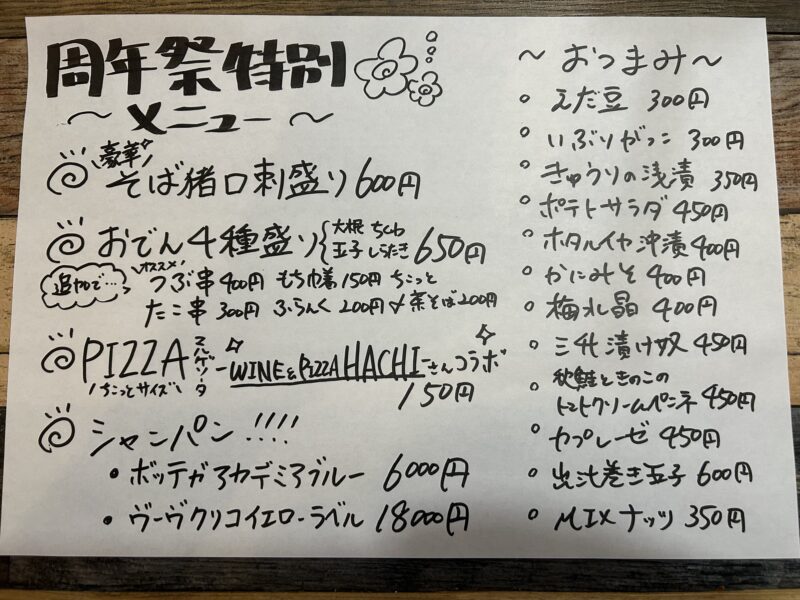 周年祭特別
〜メニュー〜
豪華
そば猪口刺盛り 600円
おでん4種盛り 大根 ちくわ 玉子 しらたき 650円
追加で… オススメ! つぶ串 400円 もち巾着 150円 ちこっと
たこ串 300円 ふらんく 200円 茶そば 200円
PIZZA マルゲリータ -WINE&PIZZA HACHI-さんコラボ
ちこっとサイズ 150円
シャンパン!!!!
・ボッテガ アカデミアブルー 6000円
・ヴーヴクリコイエローラベル 18000円
〜おつまみ〜
えだ豆 300円
いぶりがっこ 300円
きゅうりの浅漬 350円
ポテトサラダ 450円
ホタルイカ沖漬 400円
かにみそ 400円
梅水晶 400円
三代漬け奴 450円
秋鮭ときのこの
トマトクリームペンネ 450円
カプレーゼ 450円
出汁巻き玉子 600円
MIXナッツ 350円